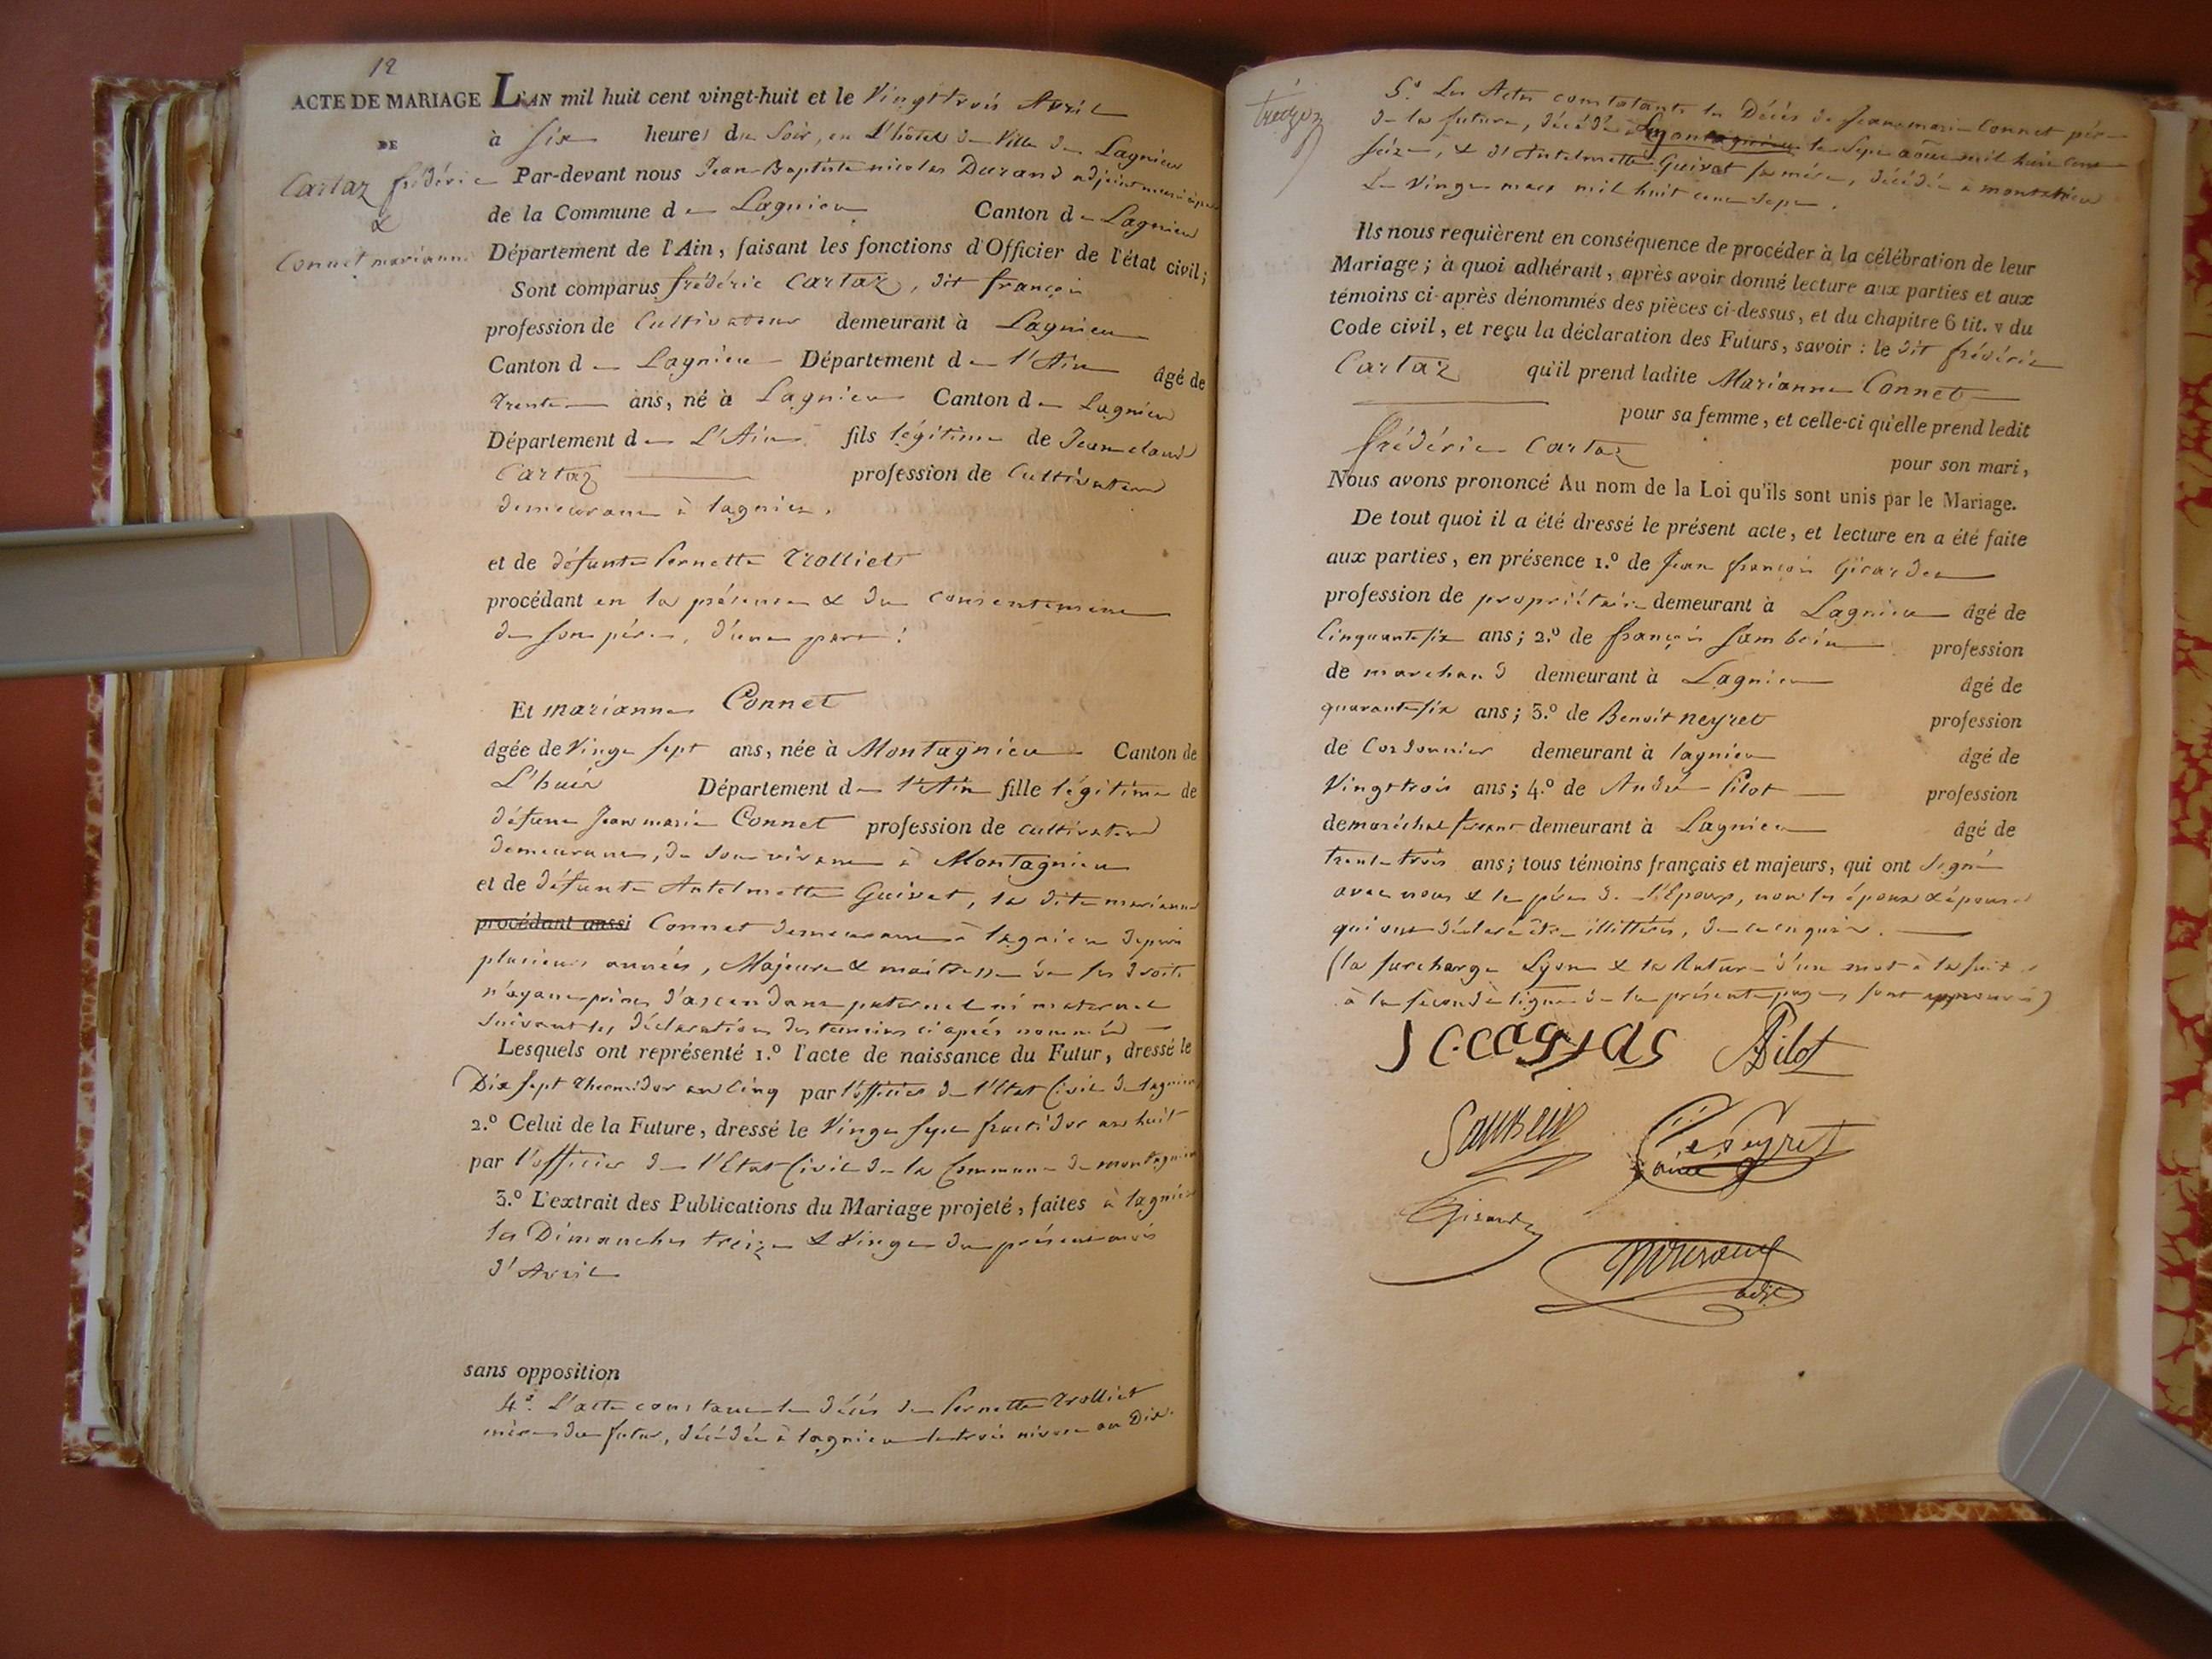 12
ACTE DE MARIAGE
DE
Cartaz frédéric
&
Connet marianne
L'AN mil huit cent vingt-huit et le Vingt trois Avril
à six heures du Soir, en L'hôtel de Ville de Lagnieu
Par-devant nous Jean-Baptiste nicolas Durand adjoint municipal
de la Commune de Lagnieu Canton de Lagnieu
Département de l'Ain, faisant les fonctions d'Officier de l'état civil;
Sont comparus frédéric Cartaz, dit françois
profession de Cultivateur demeurant à Lagnieu
Canton de Lagnieu Département de l'Ain âgé de
trente ans, né à Lagnieu Canton de Lagnieu
Département de L'Ain fils légitime de Jean claude
Cartaz profession de Cultivateur
demeurant à lagnieu.
et de défunte Pernette Trolliet
procédant en la présence & du consentement
de son père, d'une part:
Et marianne Connet
âgée de Vingt sept ans, née à Montagnieu Canton de
L'huis Département de l'Ain fille légitime de
défunt Jean marie Connet profession de cultivateur
demeurant, de son vivant à Montagnieu
et de défunte Antelmette Guivet, la dite marianne
procédant aussi Connet demeurant à lagnieu depuis
plusieurs années, Majeure & maitresse de ses droits
n'ayant plus d'ascendans paternel ni maternel
suivant les déclarations des temoins ci après nommés
Lesquels ont représenté 1.º l'acte de naissance du Futur, dressé le
Dix sept thermidor an Cinq par l'officier de l'Etat Civil de lagnieu
2.º Celui de la Future, dressé le Vingt sept fructidor an huit
par l'officier de l'Etat Civil de la Commune de montagnieu
3.º L'extrait des Publications du Mariage projeté, faites à lagnieu
les Dimanches treize & Vingt du présent mois
d'Avril
sans opposition
4.º L'acte constatant le décès de Pernette Trolliet
mère du futur, décédée à lagnieu le trois nivose an Dix.
5.º Les Actes constatants les Décès de Jean marie Connet père
de la future, décédé à Lyon le Sept août mil huit cent
seize, & d'Antelmette Guivet sa mère, décédée à montagnieu
Le Vingt mars mil huit cent sept.
Ils nous requièrent en conséquence de procéder à la célébration de leur
Mariage; à quoi adhérant, après avoir donné lecture aux parties et aux
témoins ci-après dénommés des pièces ci-dessus, et du chapitre 6 tit. v du
Code civil, et reçu la déclaration des Futurs, savoir: le dit frédéric
Cartaz qu'il prend ladite Marianne Connet
pour sa femme, et celle-ci qu'elle prend ledit
frédéric Cartaz pour son mari,
Nous avons prononcé Au nom de la Loi qu'ils sont unis par le Mariage.
De tout quoi il a été dressé le présent acte, et lecture en a été faite
aux parties, en présence 1.º de Jean françois Girardet
profession de propriétaire demeurant à Lagnieu âgé de
Cinquante six ans; 2.º de françois
profession
de marchand demeurant à Lagnieu âgé de
quarante six ans; 3.º de Benoit neyret profession
de Cordonnier demeurant à lagnieu âgé de
Vingt trois ans; 4.º de André Pilot profession
de maréchal ferrant demeurant à Lagnieu âgé de
trente trois ans; tous témoins français et majeurs, qui ont signé
avec nous & le père de l'Epoux, non les époux & épouse
qui ont déclaré être illittérés, de ce enquis.
(la surcharge Lyon & la Rature d'un mot à la suite
à la seconde ligne de la présente page sont approuvés)
Pilot